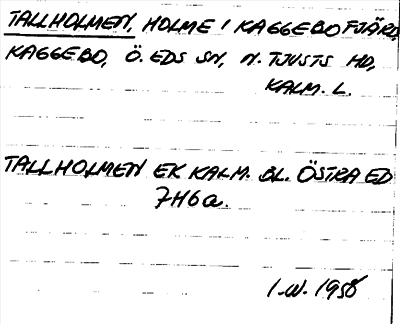 TALLHOLMEN, HOLME I KAGGEBOFJÄRD,
KAGGEBO, Ö. EDS SN, N. TJUSTS HD,
KALM. L.
TALLHOLMEN EK KALM. BL. ÖSTRA ED
7H6a.
I.W. 1958